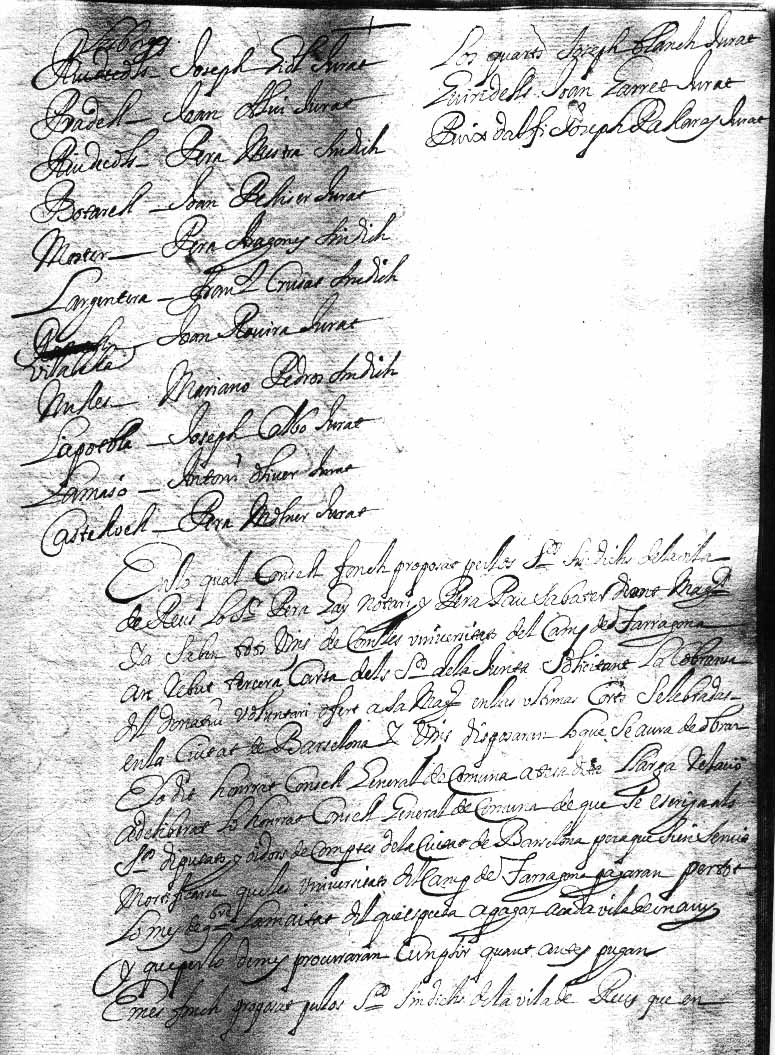 Riudecols Joseph Jurat
Pradell Joan Jurat
Riudecols Pera Mestra Sindich
Botarell Joan Pellicer Jurat
Moster Pera Aragones Sindich
Largentera Cruãt Sindich
Vilalleda Joan Rovira Jurat
Nulles Mariano Pedros Sindich
Lapoebla Joseph Albo Jurat
Lamasó Antoni Oliver Jurat
Castelloch Pera Moliner Jurat
Los quarts Joseph Blanch Jurat
Joan Jurat
Puix dalfi Joseph Pallares Jurat
En lo qual Consell fonch proposat per los Srs Sindichs de la vila
de Reus lo Sr Pera Notari y Pera Pau Sabater dient Magchs
Ya saben tots Vms de Com les universitats del Camp de Tarragona
an rebut tercera Carta dels Srs de la Junta solicitant la cobransa
del donatiu voluntari ofert a sa Magt en las ultimas Corts selebradas
en la Ciutat de Barselona y Vms disposaran lo que se aura de obrar
E lo dit honrat Consell General de Comuna llarga relació
adeliberat lo honrat Consell General de Comuna de que se escriga als
Srs diputats y oidors de Comptes de la Ciutat de Barselona pera que sien servits
que les universitats del Camp de Tarragona pagaran per tot
lo mes de 9bre la maitat del que es queda a pagar cada vila de
y que per lo demes procuraran Cumplir quant antes pugan
E mes fonch proposat per los Srs Sindichs de la vila de Reus que en